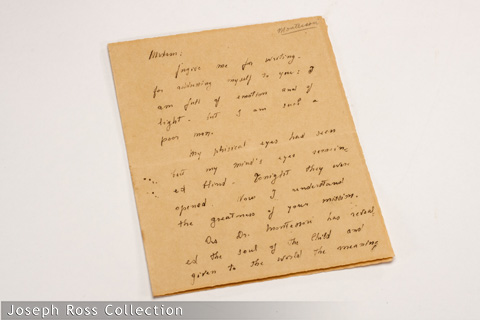 Montessori
Madam:
forgive me for writing.
for addressing myself to you: I
am full of emotion and of
light. but I am such a
poor man.
My phisical eyes had seen
but my mind's eyes remain
ed blind. Tonight they were
opened Now I understand
the greatness of your mission.
As Dr. Montessori has reveal
ed the soul of the Child and
given to the world the meaning
Joseph Ross Collection